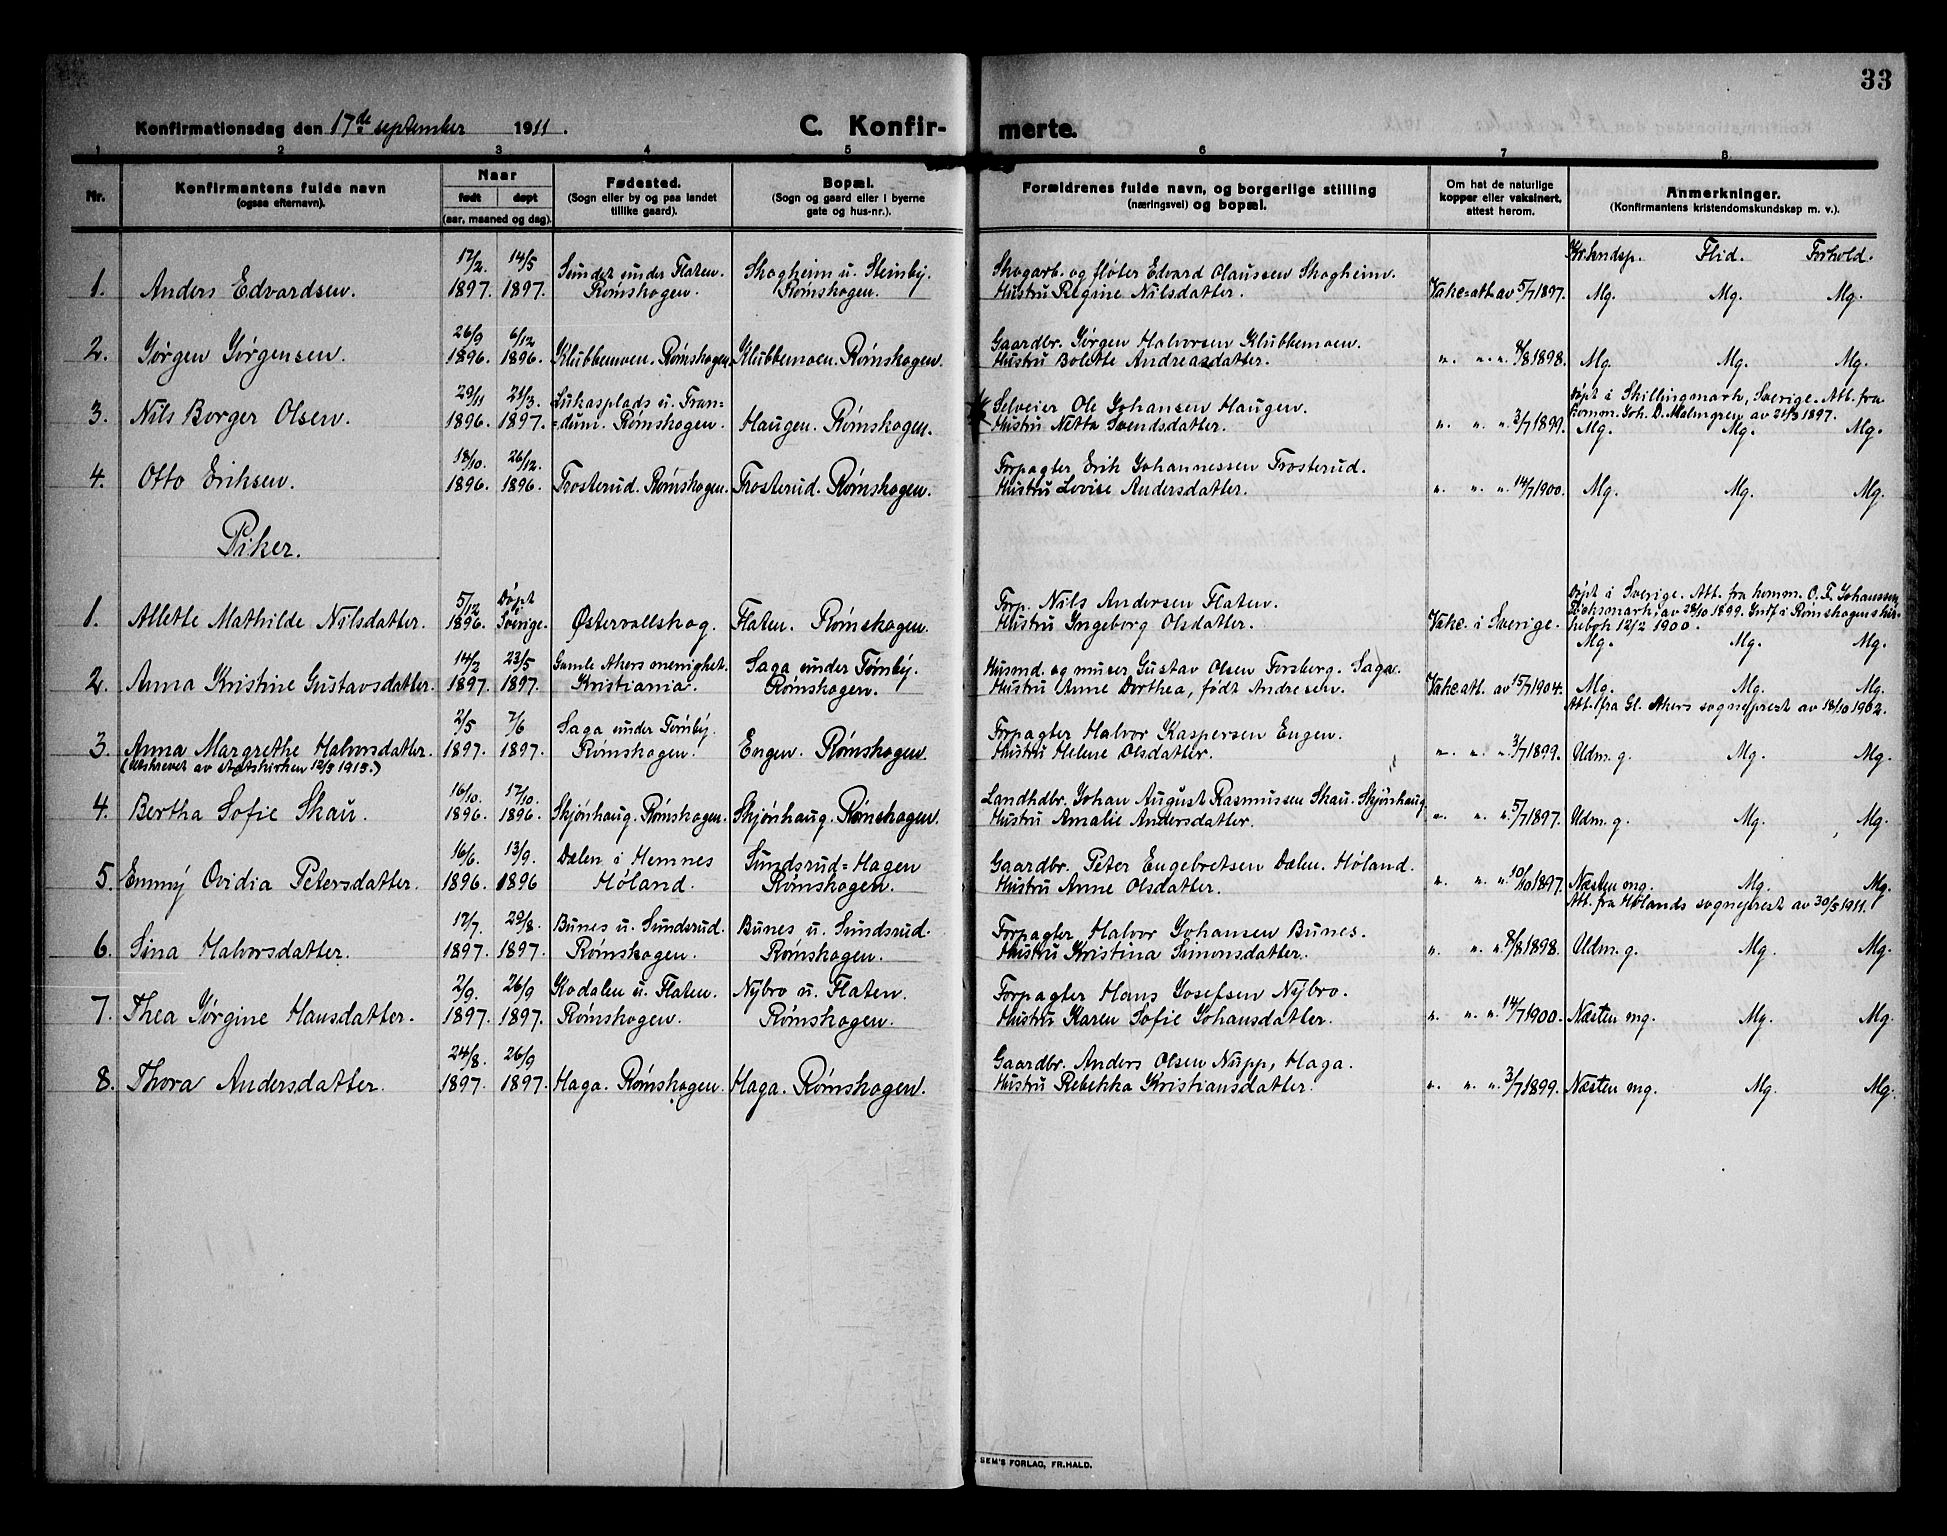 33
Konfirmationsdag den 17de september 1911.
C. Konfir- merte.
1 2 3 4 5 6 7 8
Nr.
Konfirmantens fulde navn
(ogsaa efternavn).
Naar
født døpt
(aar, maaned og dag).
Fødested.
(Sogn eller by og paa landet
tillike gaard).
Bopæl.
(Sogn og gaard eller i byerne
gate og hus-nr.).
Forældrenes fulde navn, og borgerlige stilling
(næringsvei) og bopæl.
Om hat de naturlige
kopper eller vaksinert,
attest herom.
Anmerkninger.
(Konfirmantens kristendomskundskap m. v.).
Kr.kndsp. Flid. Forhold.
17/2. 14/5 Sundet under Flaten. Skogheim u. Steinby. Skogarb. og fløter Edvard Olaussen Skogheim.
1. Anders Edvardsen. 1897. 1897. Rømskogen. Rømskogen. Hustru Regine Nilsdatter. Vakc. att. av 5/7 1897. Mg. Mg. Mg.
26/9 6/12 Gaardbr. Jørgen Halvorsen Klubbemoen.
2. Jørgen Jørgensen. 1896. 1896. Klubbemoen. Rømskogen. Klubbemoen. Rømskogen. Hustru Bolette Andreasdatter. " " " 8/8 1898. Mg. Mg. Mg.
29/11 21/3. Lukasplads u. Tran= Selveier Ole Johansen Haugen. Døpt i Skillingmark, Sverige. Att. fra
3. Nils Borger Olsen. 1896. 1897. =dum. Rømskogen. Haugen. Rømskogen. Hustru Netta Svendsdatter. " " " 3/7 1899. komm. Joh. D. Malmgren av 21/3 1897.
Mg. Mg. Mg.
18/10. 26/12. Forpagter Erik Johannessen Trosterud.
4. Otto Eriksen. 1896. 1896. Trosterud. Rømskogen. Trosterud. Rømskogen. Hustru Lovise Andersdatter. " " " 14/7 1900. Mg. Mg. Mg.
Piker.
5/12 Døpt i Forp. Nils Andersen Flaten. Døpt i Sverige. Att. fra komm. O. F. Johanssen,
1. Allette Mathilde Nilsdatter. 1896. Sverige. Østervallskog. Flaten. Rømskogen. Hustru Ingeborg Olsdatter. Vakc. i Sverige. av 28/10 1899. Indf. i Rømskogens kir-
kebok 12/2 1900.
Mg. Mg. Mg.
14/2 23/5 Gamle Akers menighet. Saga under Tørnby. Husmd. og murer Gustav Olsen Forsberg. Saga.
2. Anna Kristine Gustavsdatter. 1897. 1897. Kristiania. Rømskogen. Hustru Anne Dorthea, født Andresen. Vakc. att. av 15/7 1904. Mg. Mg. Mg.
Att. fra Gl. Akers sogneprest av 18/10 1902.
2/5 7/6 Saga under Tørnby. Forpagter Halvor Kaspersen Engen.
3. Anna Margrethe Halvorsdatter. 1897. 1897. Rømskogen. Engen. Rømskogen. Hustru Helene Olsdatter. " " " 3/7 1899. Udm. g. Mg. Mg.
(Utskrevet av statskirken 12/9 1915.)
16/10. 17/10. Landhdbr. Johan August Rasmussen Skau. Skjønhaug
4. Bertha Sofie Skau. 1896. 1896. Skjønhaug. Rømskogen. Skjønhaug. Rømskogen. Hustru Amalie Andersdatter. " " " 5/7 1897. Udm. g. Mg. Mg.
16/6. 13/9. Dælen i Hemnes Sundsrud=Hagen Gaardbr. Peter Engebretsen Dælen. Høland.
5. Emmy Ovidia Petersdatter. 1896. 1896 Høland. Rømskogen. Hustru Anne Olsdatter. " " " 10/10 1897. Næsten mg. Mg. Mg.
Att. fra Hølands sogneprest av 30/5 1911.
17/7. 29/8. Bunes u. Sundsrud. Bunes u. Sundsrud. Forpagter Halvor Johansen Bunes.
6. Sina Halvorsdatter. 1897. 1897. Rømskogen. Rømskogen. Hustru Kristina Simonsdatter. " " " 8/8 1898. Udm. g. Mg. Mg.
2/9. 26/9 Kodalen u. Flaten. Nybro u. Flaten. Forpagter Hans Josefsen Nybro.
7. Thea Jørgine Hansdatter. 1897. 1897. Rømskogen. Rømskogen. Hustru Karen Sofie Johansdatter. " " " 14/7 1900. Næsten mg. Mg. Mg.
24/8. 26/9 Gaardbr. Anders Olsen Nupp, Haga.
8. Thora Andersdatter. 1897. 1897. Haga. Rømskogen. Haga. Rømskogen. Hustru Rebekka Kristiansdatter. " " " 3/7 1899. Næsten mg. Mg. Mg.
SEM'S FORLAG, FR.HALD.